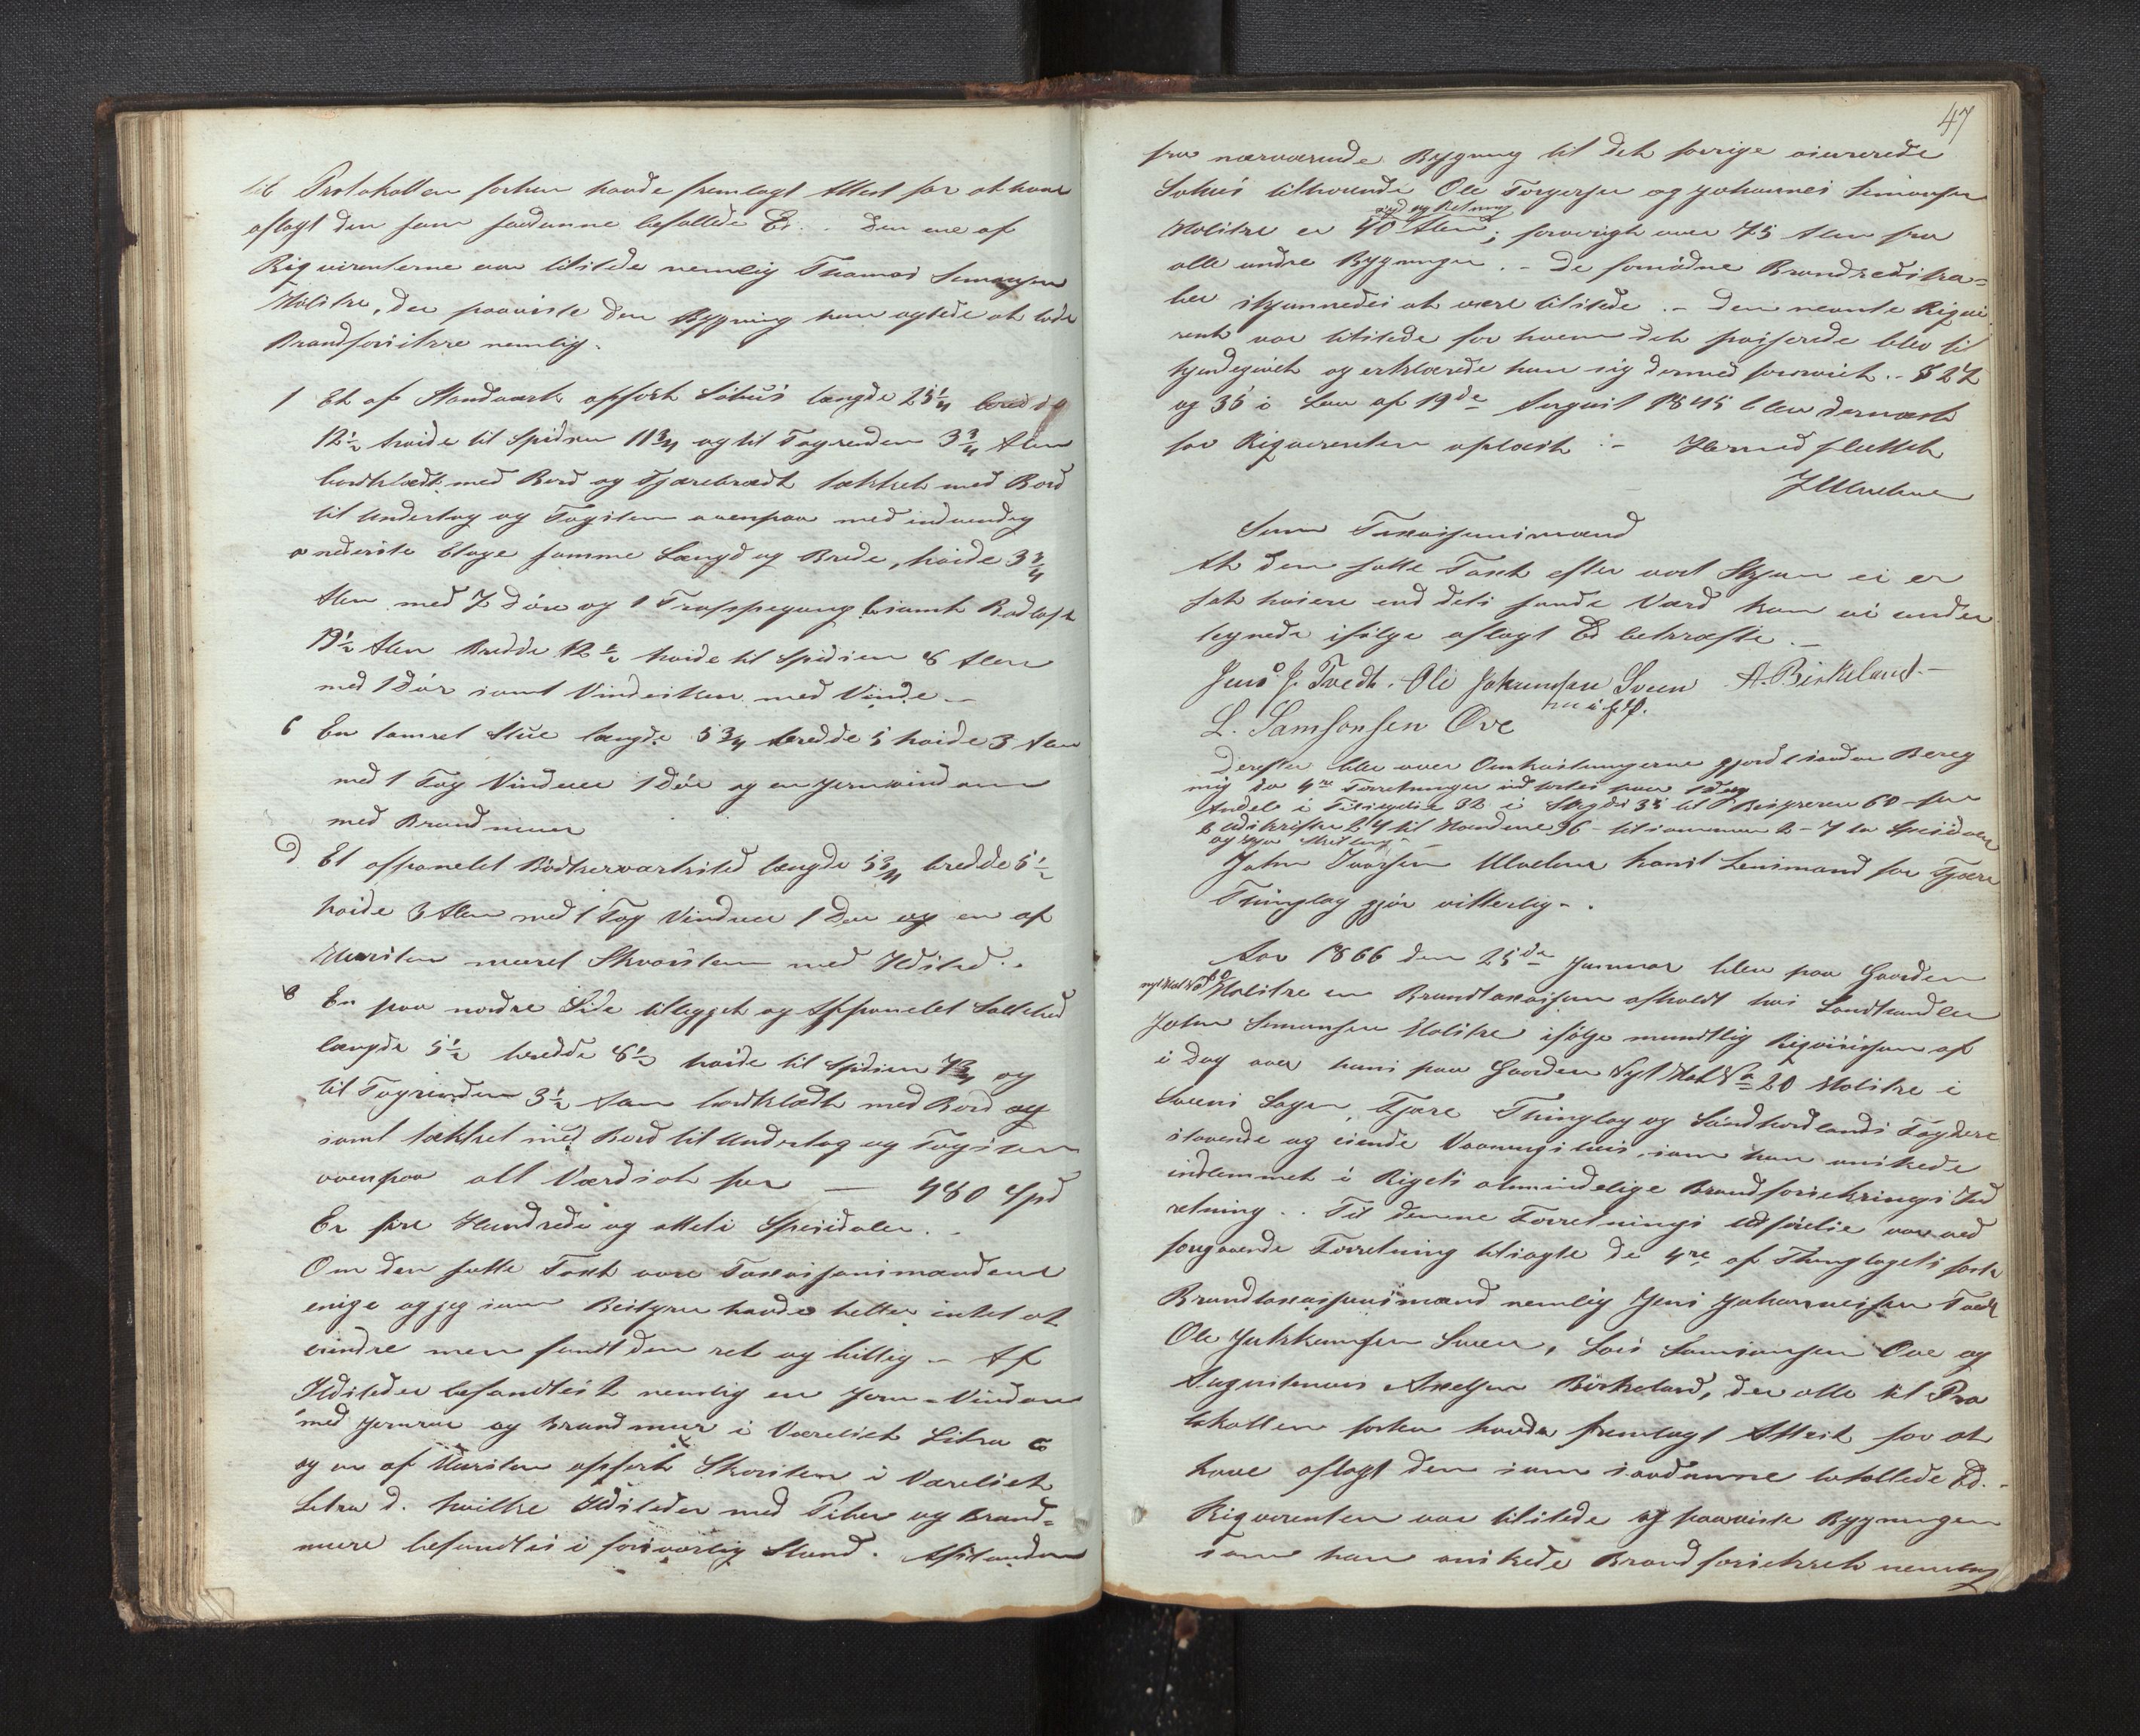 til Protokollen forhen havde fremlagt Attest for at have
aflagt den som saadanne befallede Ed. Den ene af
Reqvirenterne var tilstede nemlig Thomas Simonsen
Holstre, der paaviste den Bygning han agtede at lade
Brandforsikkre nemlig.
1 Et af Standværk opført Søhus længde 25¼ bredde
12½ høide til Spidsen 11¾ og til Tagrenden 3¾ Alen
bordklædt med Bord og Tjærebrædt takket med Bord
til Undertag og Tagsten ovenpaa med indvendig
a nederste Etage samme Længde og Brede, høide 3¾
Alen med 7 Døre og 1 Trappegang b samt Rodloft
19½ Alen Bredde 12½ høide til Spidsen 8 Alen
med 1 Dør samt Vinderker med Vinde
c En tømret Stue længde 5¾ bredde 5 høide 3 Alen
med 1 Fag Vinduer 1 Dør og en Jernvindovn
med Brandmuur
d Et oppanelet Bødkerværksted længde 5¾ bredde 5½
høide 3 Alen med 1 Fag Vinduer 1 Dør og en af
Muursten muret Skorsten med Ildsted.
e En paa nordre Side tillegget og oppanelet Saltebod
længde 5½ bredde 8½ høide til Spidsen 7¾ og
til Tagrenden 3½ Alen bordklædt med Bord og
samt takket med Bord til Undertag og Tagsten
ovenpaa alt Værdsat for — 480 Spd
Er fire Hundrede og otteti Speciedaler.
Om den satte Taxt vare Taxasjonsmændene
enige og jeg som Bestyrer havde heller intet at
erindre men fandt den ret og billig – Af
Ildsteder befandtes nemlig en Jern-Vindovn
med Jernror og Brandmuur i Værelset Litra c
og en af Mursten opført Skorsten i Værelset
Litra d. hvilke Ildsteder med Piber og Brand=
mure befandtes i forsvarlig Stand. Afstanden
47
fra nærværende Bygning til det forrige assurerede
Søhus tilhørende Ole Torgersen og Johannes Simonsen
syd og
Holstre er 40 Alen; forøvrigt over 75 Alen fra
alle andre Bygninger. – De fornødne Brandredska=
ber skjønnedes at være tilstede. – Den nævnte Reqvi
rent var tilstede for hvem det passerede blev til
kjendegivet og erklærede han sig dermed fornøiet. – § 27
og 35 i Lov af 19de August 1845 blev dernæst
for Reqvirenten oplæst :– Hermed sluttet
JUlvehne
Som Taxasjonsmænd
At den satte Taxt efter vort Skjøn ei er
sat høiere end dets sande Værd kan vi under
tegnede ifølge aflagt Ed bekræfte. –
Jens J. Tvedt. Ole Jokumsen Sveen A. Birkeland
L. Samsonsen Ove
Derefter blev over Omkostningerne gjort saadan Bereg
ning da 4re Forretninger udførtes paa 1 Dag
Andel i 32 i Skyds 35 til Bestyreren 60
Udskrifter 24 til Mændene 96 – tilsammen 2–7
John Ivarsen Ulvehne konst Lensmand for Fjære
Thinglag gjør vitterlig –.
Aar 1866 den 25de Januar blev paa Gaarden
Holstre en Brandtaxasjon afholdt hos Landhandler
John Simonsen Holstre ifølge mundtlig Reqvisision af
i Dag over hans paa Gaarden Nyt Mat No 20 Holstre i
Sveens Sogn, Fjære Thinglag og Søndhordlands Fogderie
staaende og eiende Vaaningshuus som han ønskede
indlemmet i Rigets almindelige Brandforsikrings Ind
retning.. Til denne Forretnings Udførelse var ved
foregaaende Forretning tilsagte de 4re af Thinglagets faste
Brandtaxasjonsmænd nemlig Jens Johannessen Tvedt
Ole Jokkumsen Sveen, Lars Samsonsen Ove og
Augustinus Axelsen Birkeland, der alle til Pro
tokollen forhen havde fremlagt Attest for at
have aflagt den som saadanne befallede Ed. –
Reqvirenten var tilstede og paaviste Bygningen
som han ønskede Brandforsikkret nemlig